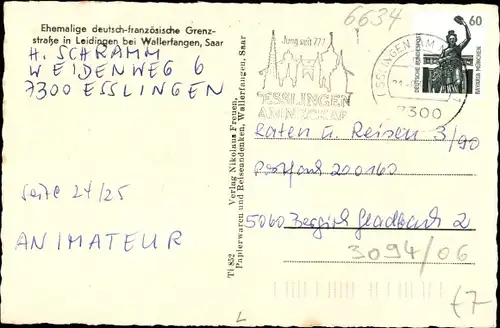 Ehemalige deutsch-französische Grenz-
straße in Leidingen bei Wallerfangen, Saar
H. SCHRAMM
WEIDENWEG 6
7300 ESSLINGEN
Seite 24/25
ANIMATEUR
Verlag Nikolaus Freuen,
Papierwaren und Reiseandenken, Wallerfangen, Saar
Ti 852
6634
Jung seit 777
ESSLINGEN
AM NECKAR
ESSLINGEN AM N
7300
60
DEUTSCHE BUNDESPOST
BAVARIA MÜNCHEN
Raten u. Reisen 3/90
Postfach 200160
5060 Bergisch Gladbach 2
3094/06
£7